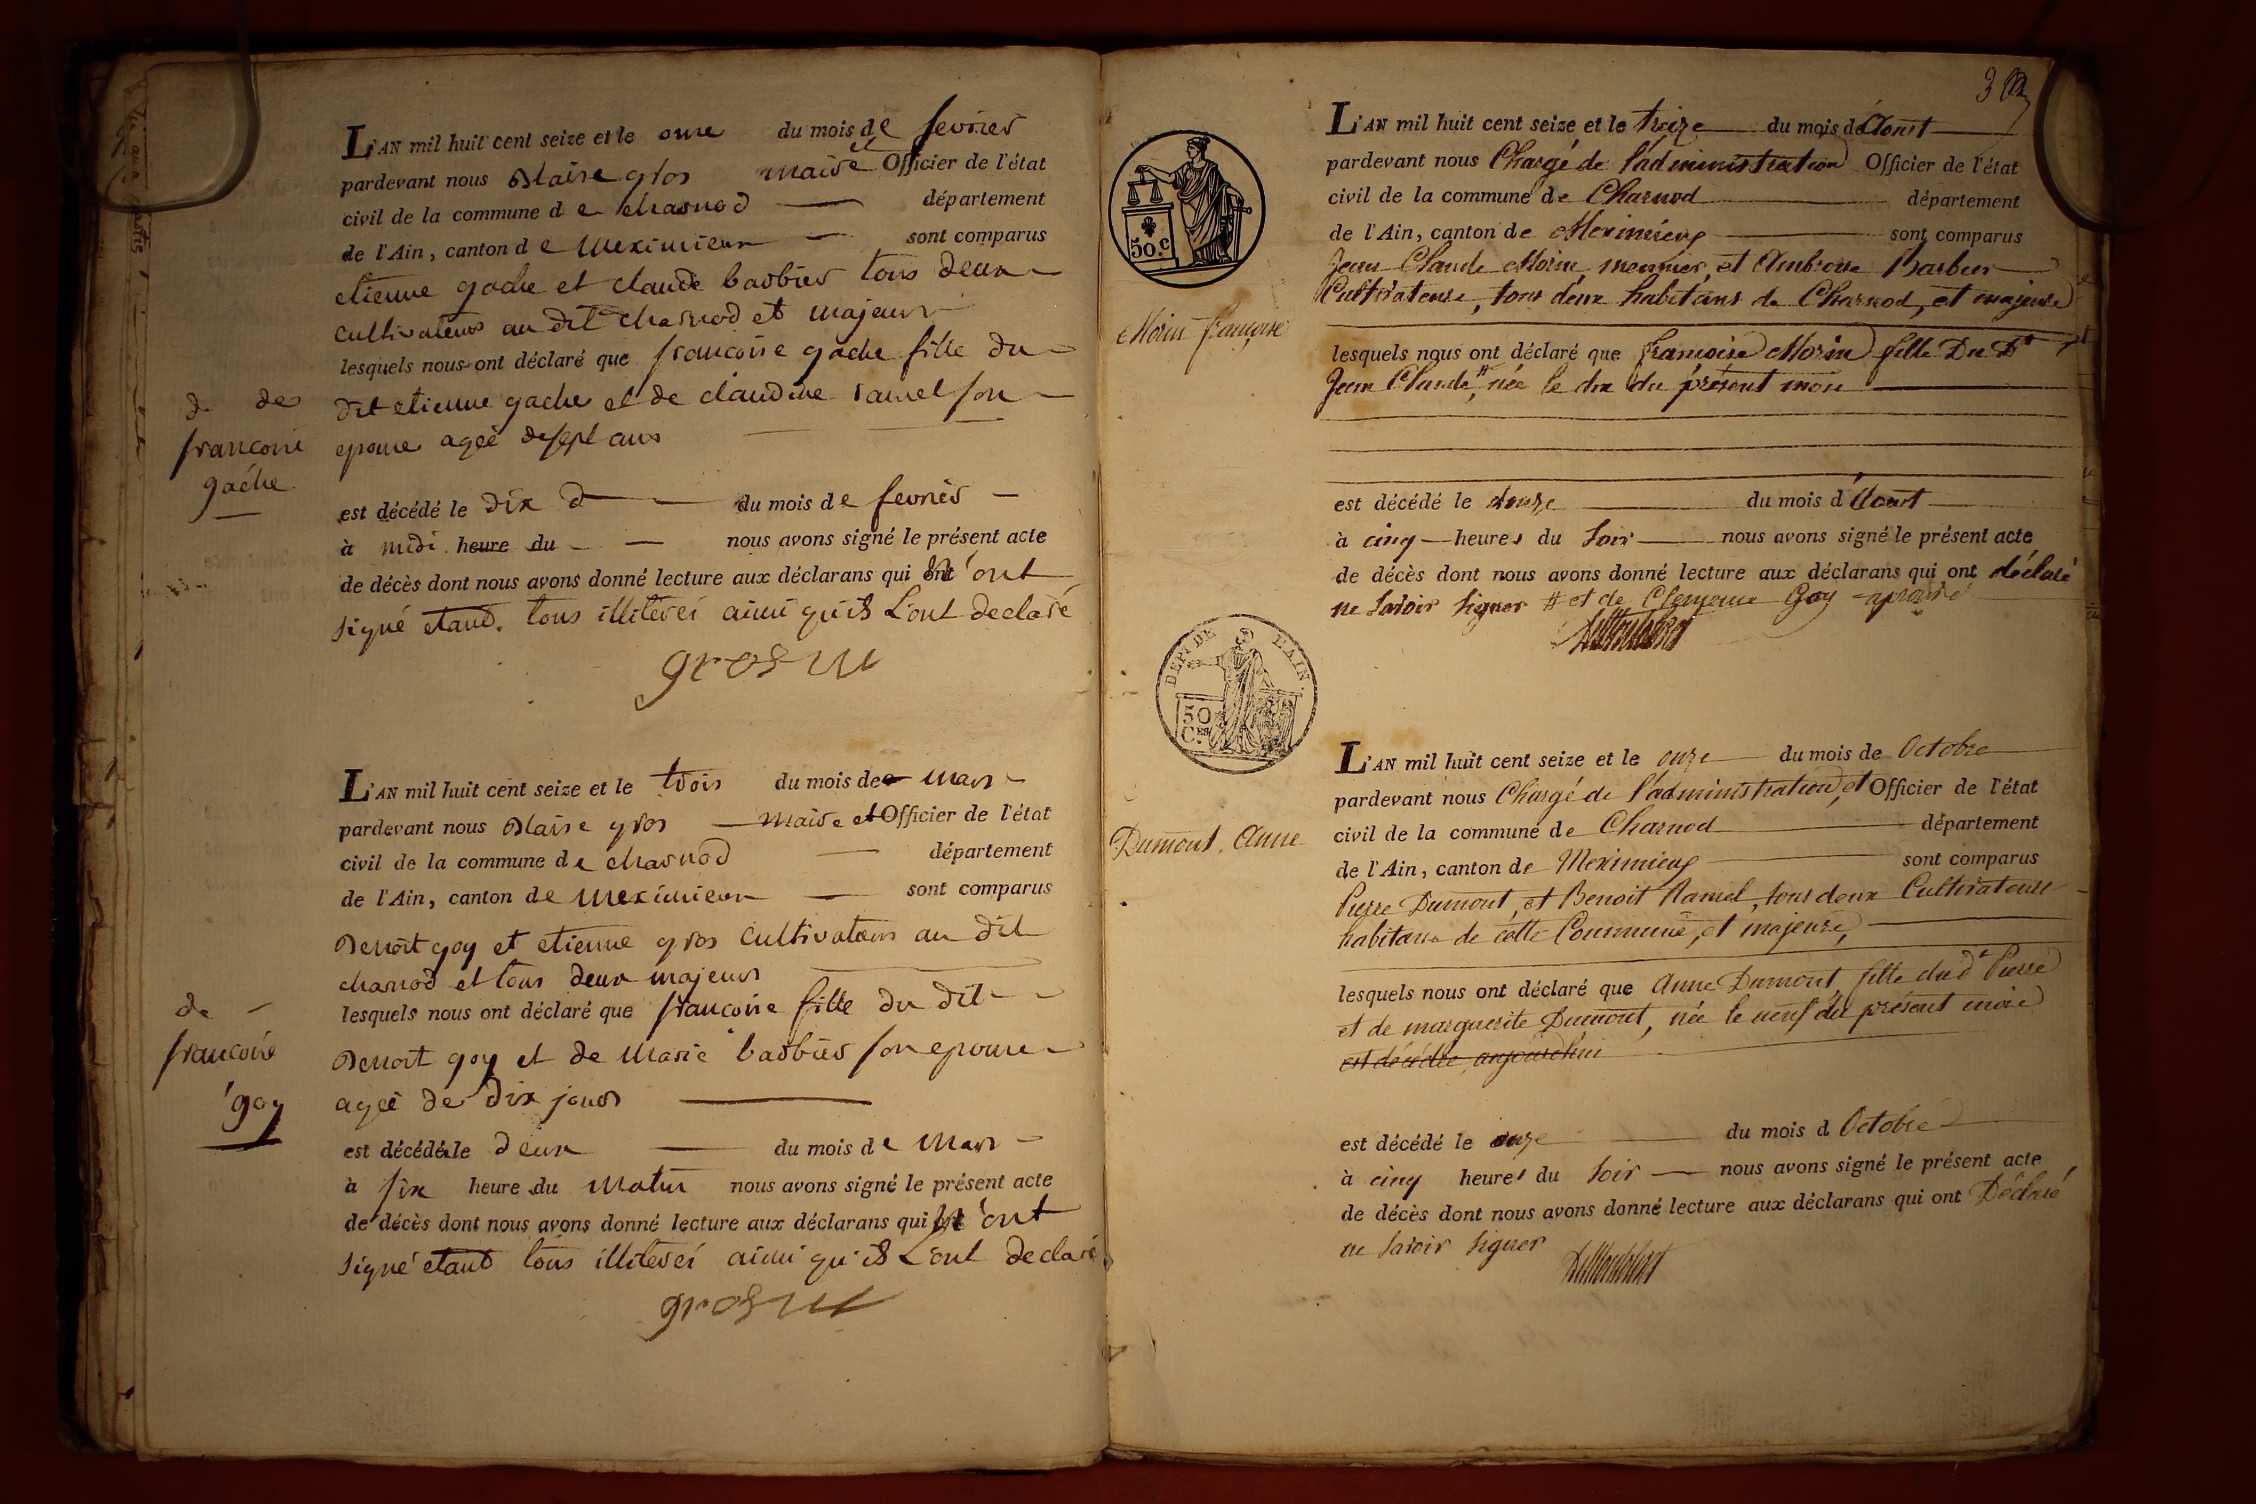 L'AN mil huit cent seize et le onze du mois de fevrier
pardevant nous Blaise gros maire et Officier de l'état
civil de la commune de charnod département
de l'Ain, canton de Meximieux sont comparus
etienne gache et claude barbier tous deux
cultivateurs au dit charnod et majeurs
lesquels nous ont déclaré que francoise gache fille du
dit etienne gache et de claudine ramel son
de des
epouse ageè de sept ans
francoise
gache
est décédé le dix du mois de fevrier
à midi heure du nous avons signé le présent acte
de décès dont nous avons donné lecture aux déclarans qui n'ont
signé etant tous illiterés ainsi quils L'ont declaré
gros m
L'AN mil huit cent seize et le trois du mois de mars
pardevant nous Blaise gros maire et Officier de l'état
civil de la commune de charnod département
de l'Ain, canton de Meximieux sont comparus
Benoit goy et etienne gros cultivateurs au dit
charnod et tous deux majeurs
de
lesquels nous ont déclaré que francoise fille du dit
francoise
Benoit goy et de Marie barbier son epouse
goy
ageè de dix jours
est décédé le deux du mois de Mars
à six heure du Matin nous avons signé le présent acte
de décès dont nous avons donné lecture aux déclarans qui n'ont
signé etant tous illiterés ainsi qu'ils L'ont declaré
gros m
L'AN mil huit cent seize et le treize du mois d'Aout
pardevant nous Chargé de l'administration Officier de l'état
civil de la commune de Charnod département
50.c
de l'Ain, canton de Meximieux sont comparus
Jean Claude Morin meunier, et Ambroise Barbier
Cultivateurs, tous deux habitans de Charnod, et majeurs
Morin françoise
lesquels nous ont déclaré que francoise Morin fille Du Dt
Jean Claude #, née le dix du présent mois
est décédé le douze du mois d'Aout
à cinq heures du soir nous avons signé le présent acte
de décès dont nous avons donné lecture aux déclarans qui ont déclaré
ne savoir signer # et de Clemence Goy approuvé
DEPT DE L'AIN
50 Ces
L'AN mil huit cent seize et le onze du mois de Octobre
pardevant nous Chargé de l'administration, et Officier de l'état
Dumont Anne
civil de la commune de Charnod département
de l'Ain, canton de Meximieux sont comparus
Pierre Dumont, et Benoit Ramel, tous deux Cultivateurs
habitans de cette Commune, et majeurs,
lesquels nous ont déclaré que Anne Dumont, fille dud.t Pierre
et de marguerite Dumont, née le neuf du présent mois
est décédée aujourdhui
est décédé le onze du mois d Octobre
à cinq heures du soir nous avons signé le présent acte
de décès dont nous avons donné lecture aux déclarans qui ont Déclaré
ne savoir signer